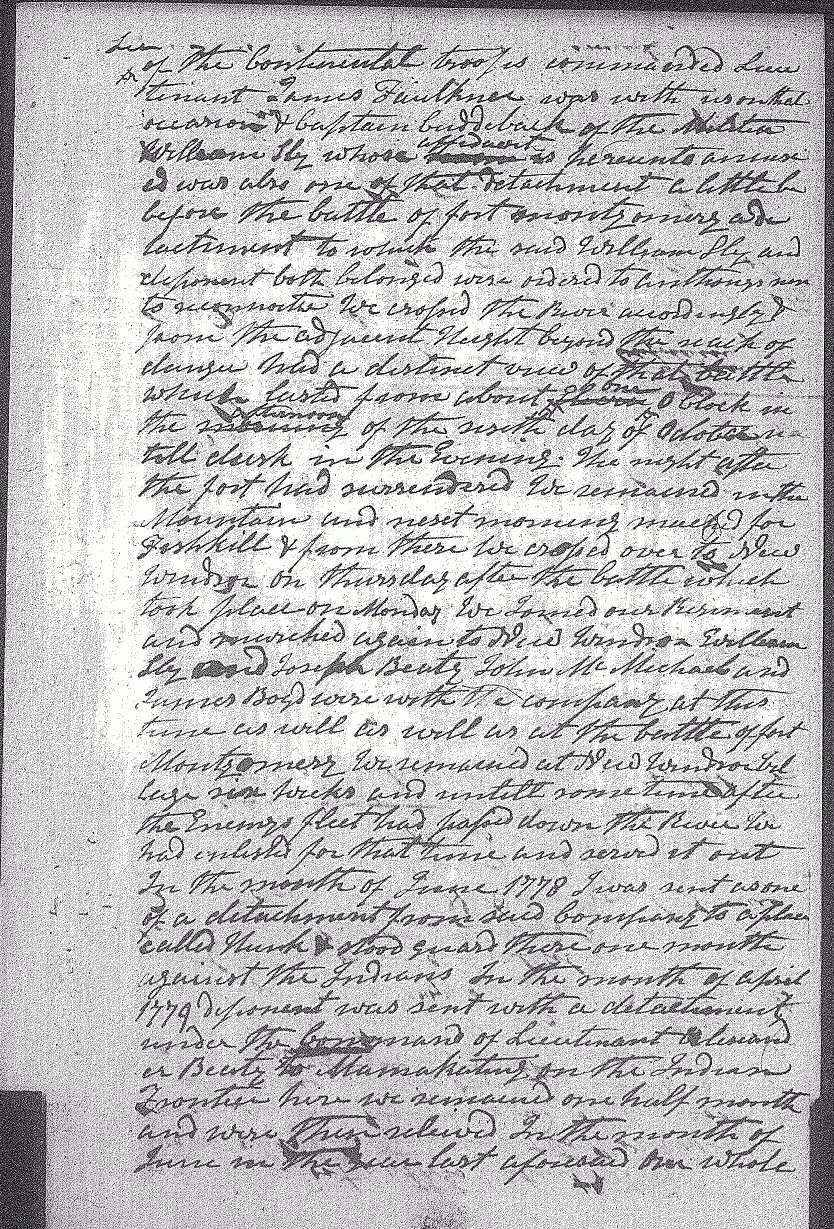 of the Continental troops commanded Lieu
tenant James Faulkner was with us on that
occasion & Captain Cuddeback of the Militia
William Sly whose affidavit is hereunto annex
ed was also one of that detachment a little be
before the battle of fort montgomery a de
tachment to which the said William Sly and
deponent both belonged were ordered to anthonys nose
to reconnoitre We crossed the River accordingly &
from the adjacent Height beyond the reach of
danger had a distinct view of that battle
which lasted from about one O Clock in
the afternoon of the sixth day of October
till dusk in the Evening. The night after
the fort had surrendered We remained in the
Mountain and next morning marched for
Fishkill & from there We crossed over to New
Windsor on thursday after the battle which
took place on Monday We Joined our Regiment
and marched again to New Windsor William
Sly and Joseph Beaty John McMichael and
James Boyd were with the company at this
time as will as will as at the battle of fort
Montgomery We remained at New Windsor Vil
lage six Weeks and untill some time after
the Enemys fleet had passd down the River We
had enlisted for that time and served it out
In the month of June 1778 I was sent as one
of a detachment from said Company to a place
called Hunk & stood guard there one month
against the Indians In the month of april
1779 deponent was sent with a detachment
under the Command of Lieutenant alexand
er Beaty to Mamakating on the Indian
Frontier here we remained one half month
and were then relieved In the month of
June in the year last aforesaid Our whole